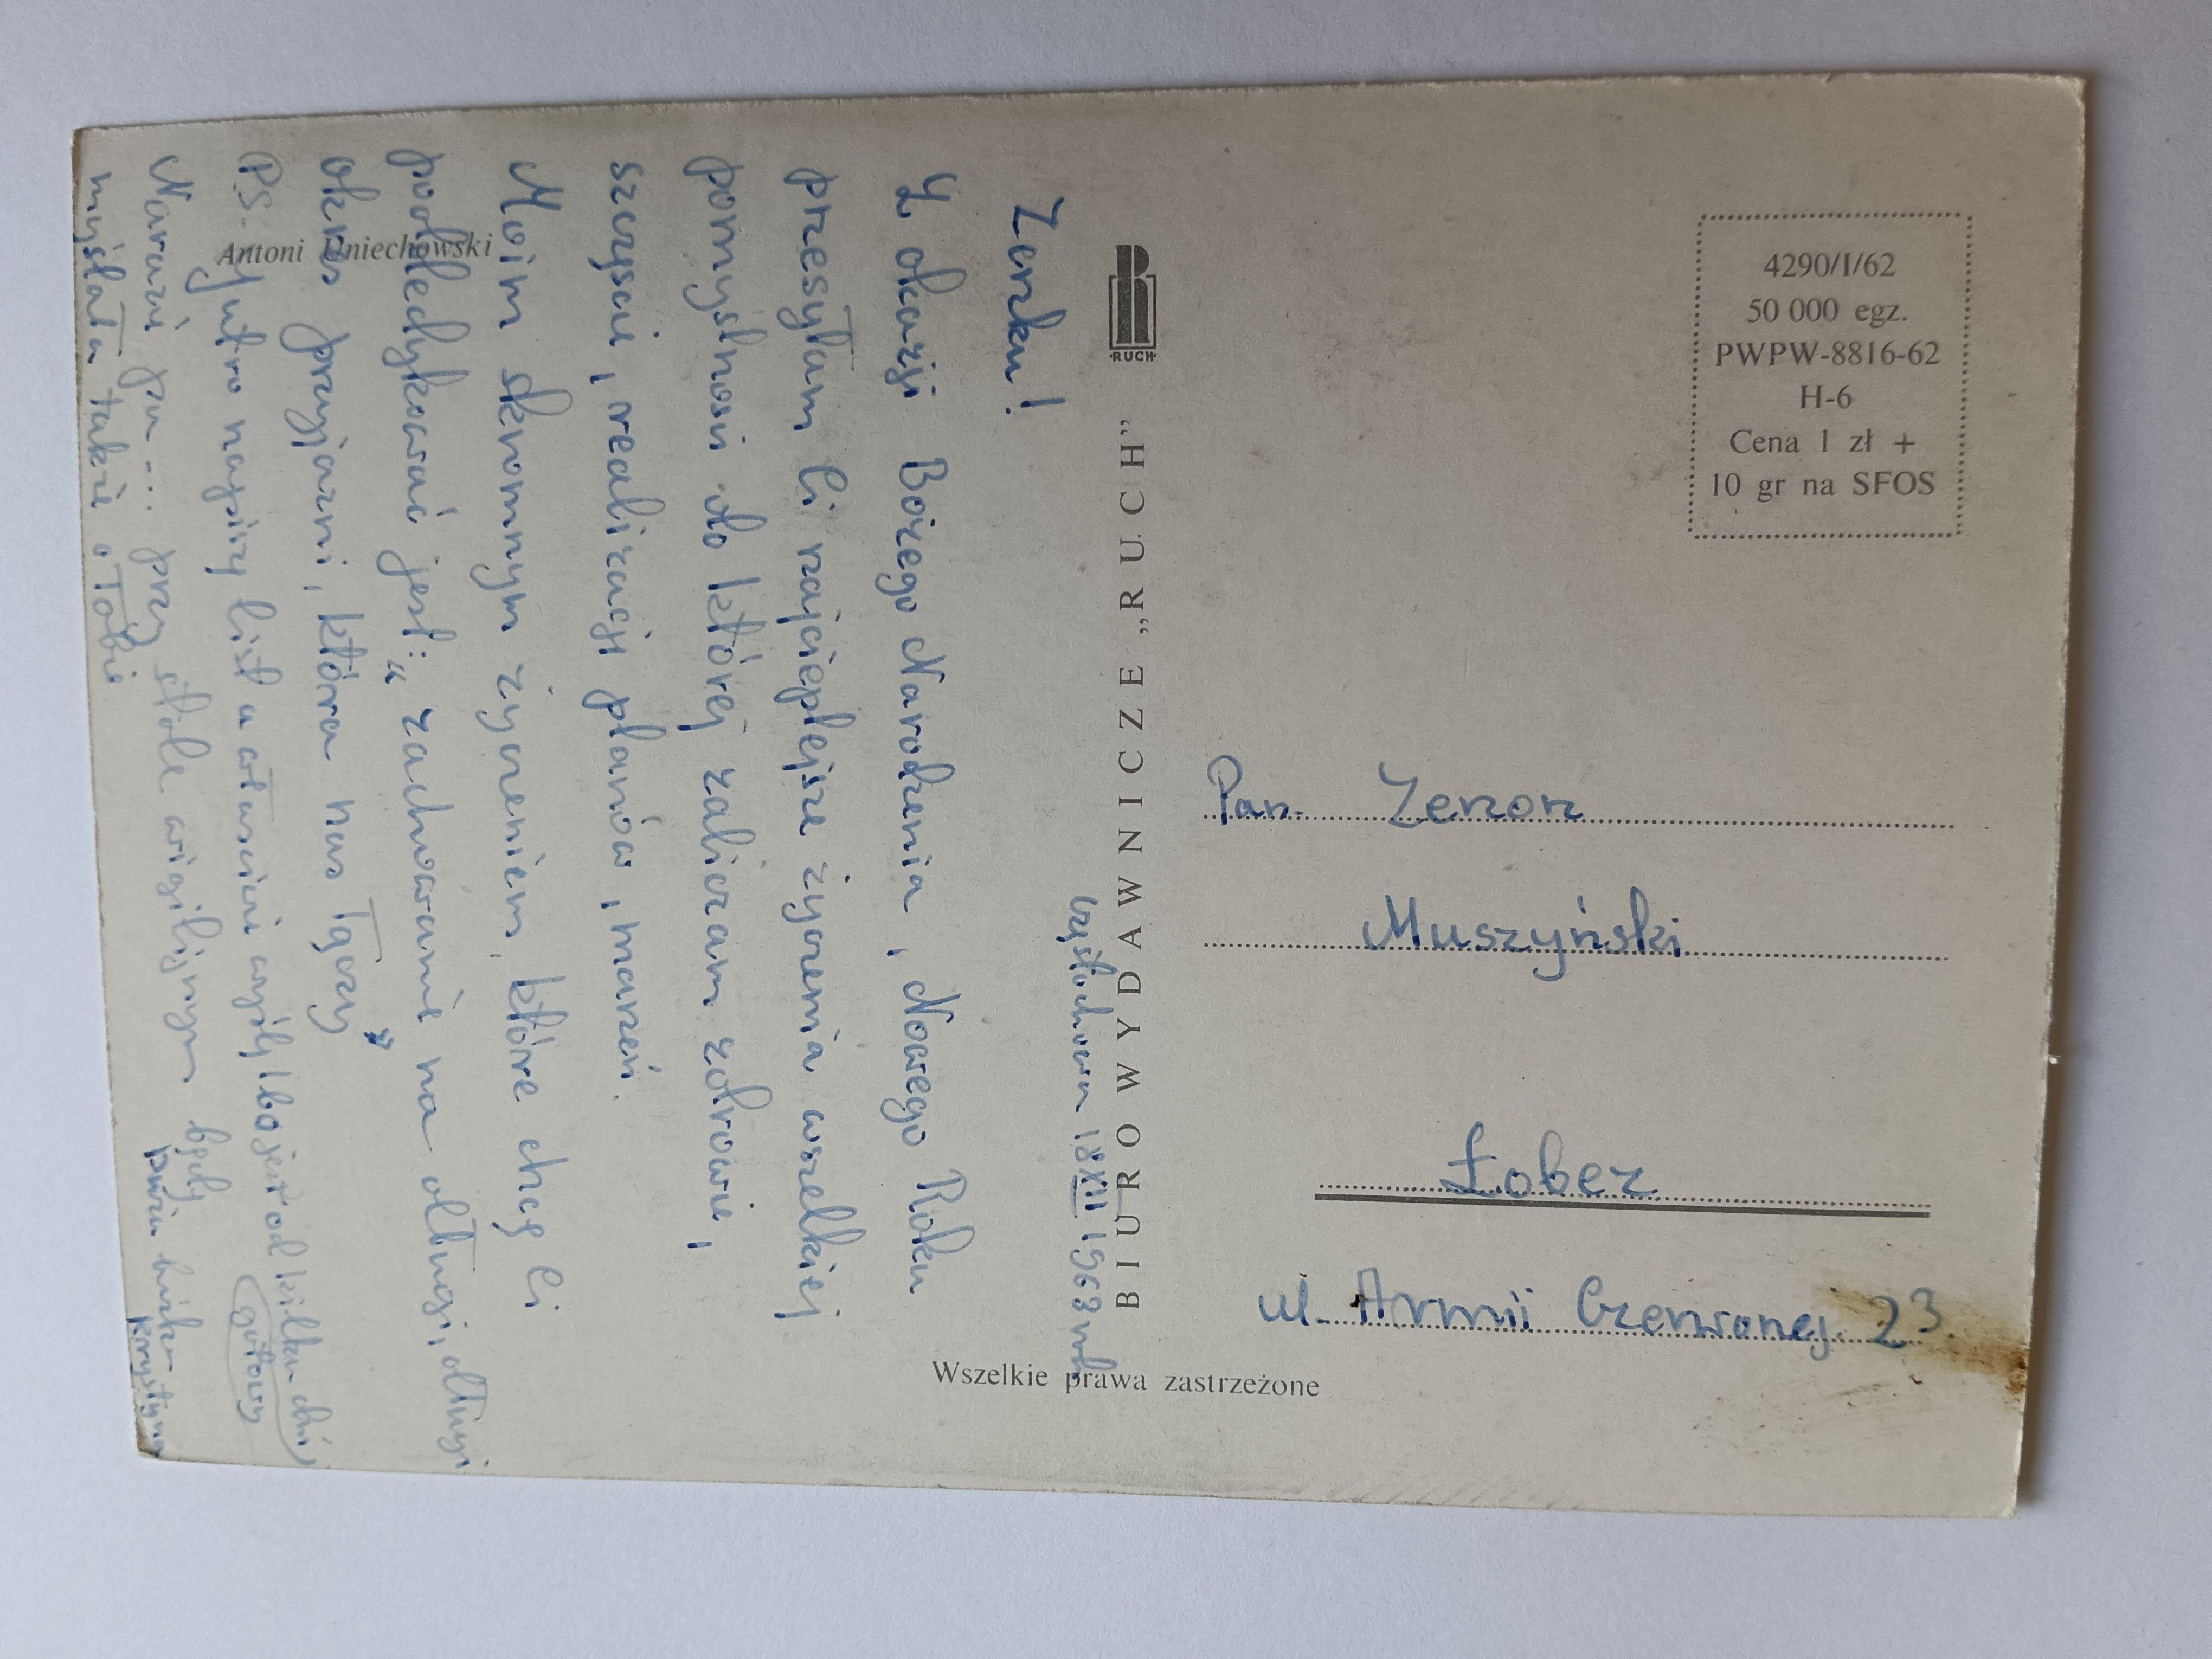 Antoni Uniechowski
RUCH
BIURO WYDAWNICZE „RUCH”
Wszelkie prawa zastrzeżone
4290/I/62
50 000 egz.
PWPW-8816-62
H-6
Cena 1 zł +
10 gr na SFOS
Pan. Zenon
Muszyński
Łobez
ul. Armii Czerwonej 23
Częstochowa 18 XII 1963 rok
Zenku!
Z okazji Bożego Narodzenia, Nowego Roku
przesyłam Ci najcieplejsze życzenia wszelkiej
pomyślności do której zaliczam zdrowie,
szczęście, realizację planów, marzeń.
Moim skromnym życzeniem, które chcę Ci
podedykować jest: „zachowanie na długi, długi
okres przyjaźni, która nas łączy”
PS. Jutro napiszę list a właściwie wyślę bo jest od kilku dni
gotowy
Narazie pa... przy stole wigilijnym będę
myślała także o Tobie
Krystyna